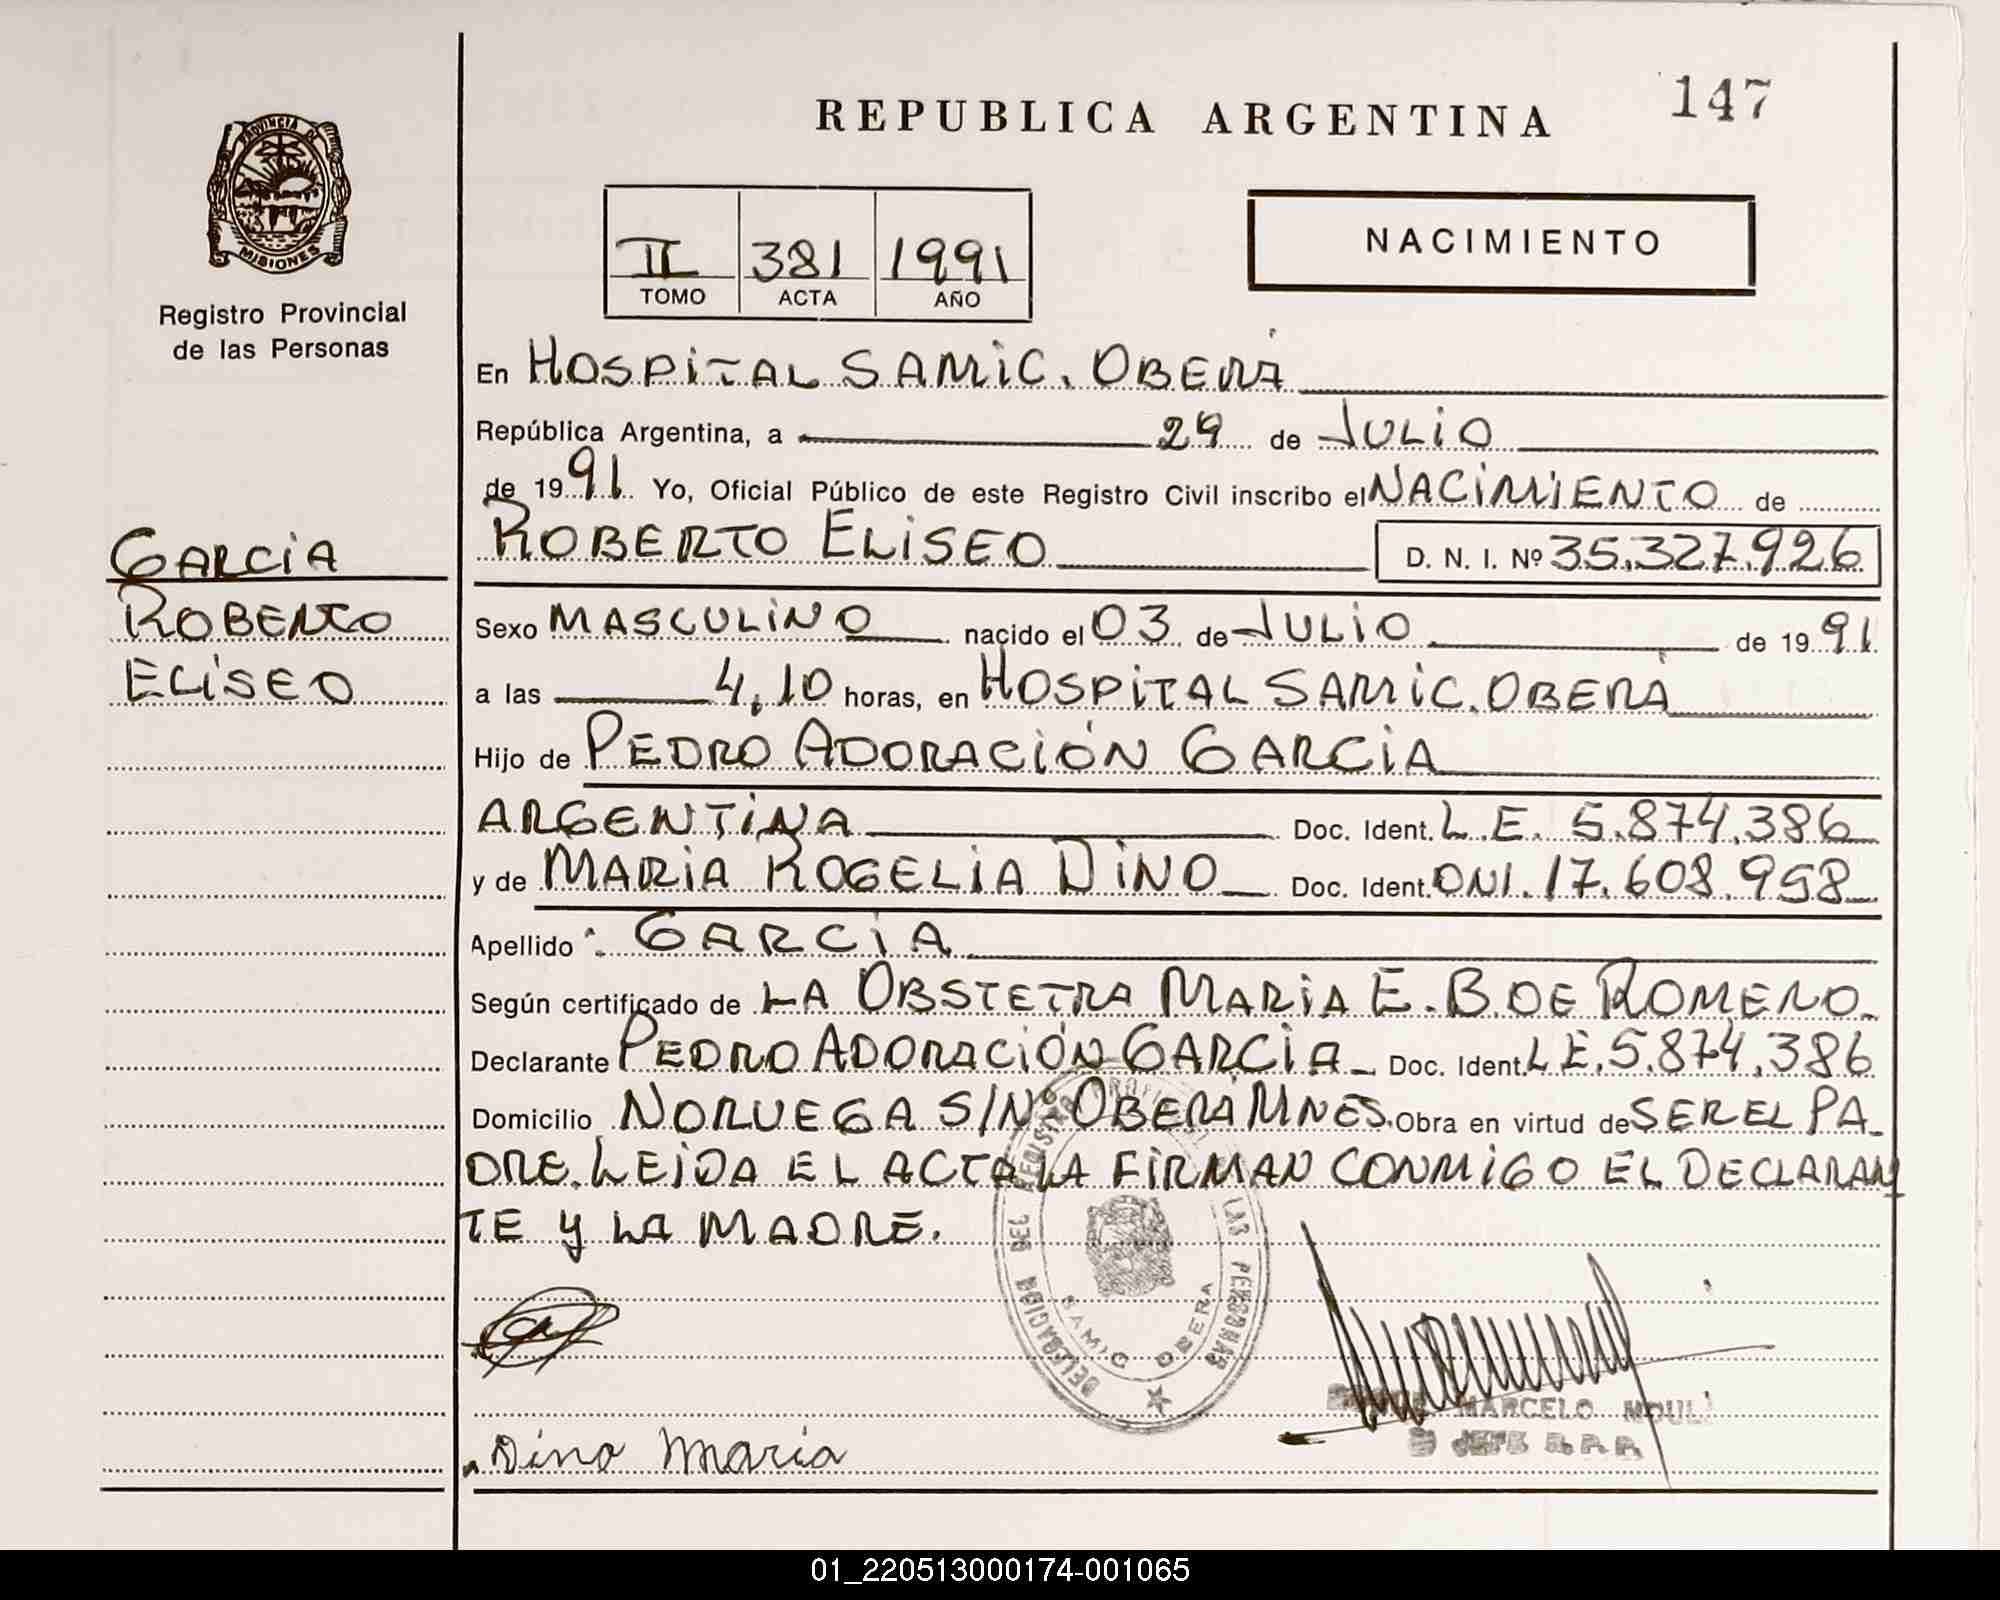 147
REPUBLICA ARGENTINA
PROVINCIA DE
MISIONES
Registro Provincial
de las Personas
NACIMIENTO
II 381 1991
TOMO ACTA AÑO
En HOSPITAL SAMIC. OBERÁ
República Argentina, a 29 de JULIO
de 1991. Yo, Oficial Público de este Registro Civil inscribo el NACIMIENTO de
GARCIA
ROBERTO
ELISEO
ROBERTO ELISEO D. N. I. Nº 35.327.926
Sexo MASCULINO nacido el 03 de JULIO de 1991
a las 4,10 horas, en HOSPITAL SAMIC. OBERÁ
Hijo de PEDRO ADORACIÓN GARCIA
ARGENTINA Doc. Ident. L.E. 5.874.386
y de MARIA ROGELIA DINO Doc. Ident. DNI. 17.608.958
Apellido : GARCIA
Según certificado de LA OBSTETRA MARIA E. B. DE ROMERO.
Declarante PEDRO ADORACIÓN GARCIA Doc. Ident. L.E. 5.874.386
Domicilio NORUEGA S/Nº OBERÁ MNES. Obra en virtud de SER EL PA-
DRE. LEIDA EL ACTA LA FIRMAN CONMIGO EL DECLARAN
TE Y LA MADRE.
DELEGACION DEL REGISTRO PROVINCIAL DE LAS PERSONAS
SAMIC OBERA
MARCELO MOUL
JEFE R.P.P.
Dino Maria
01_220513000174-001065